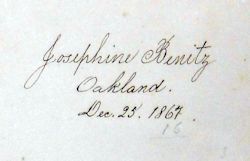 Josephine Benitz
Oakland.
Dec. 25. 1867
16